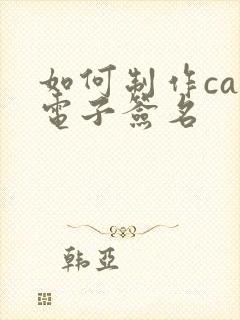 如何制作ca
電子簽名
韩亚